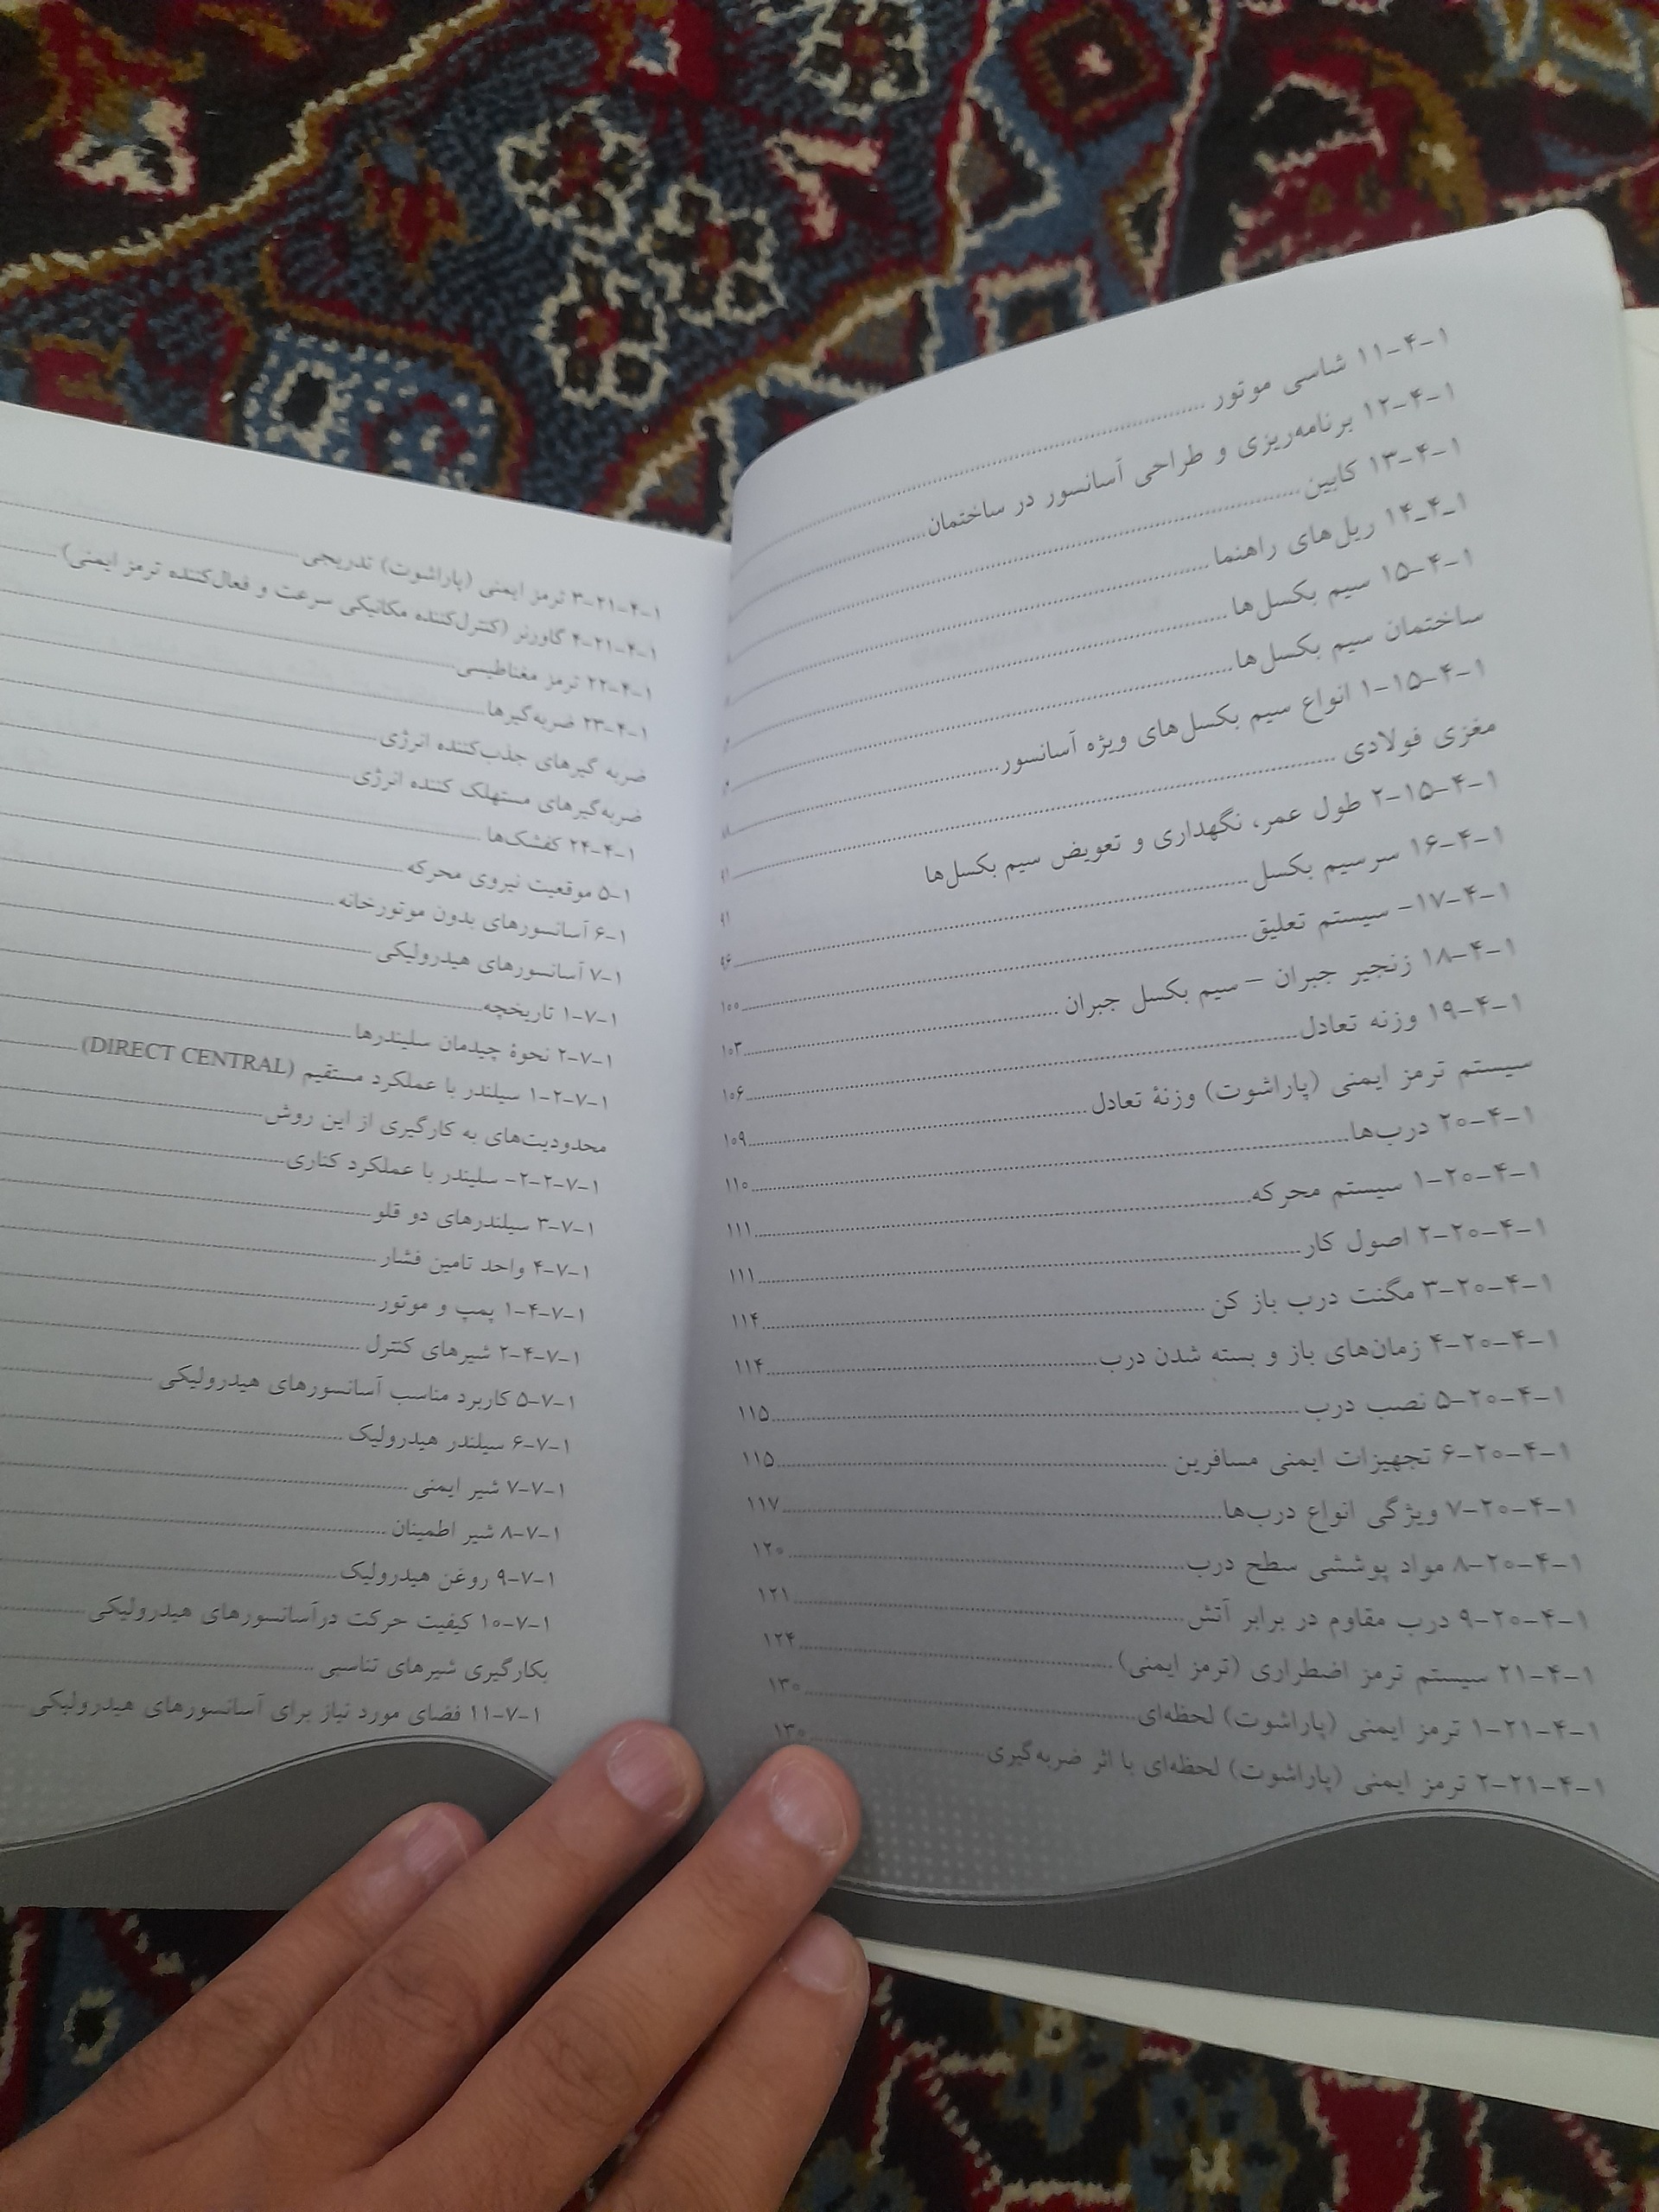 ۱-۴-۱۱ شاسی موتور
۱-۴-۱۲ برنامه‌ریزی و طراحی آسانسور در ساختمان
۱-۴-۱۳ کابین
۱-۴-۱۴ ریل‌های راهنما
۱-۴-۱۵ سیم بکسل‌ها
ساختمان سیم بکسل‌ها
۱-۴-۱۵-۱ انواع سیم بکسل‌های ویژه آسانسور
مغزی فولادی
۱-۴-۱۵-۲ طول عمر، نگهداری و تعویض سیم بکسل‌ها
۱-۴-۱۶ سرسیم بکسل
۱-۴-۱۷- سیستم تعلیق ۱۰۰
۱-۴-۱۸ زنجیر جبران – سیم بکسل جبران ۱۰۳
۱-۴-۱۹ وزنه تعادل ۱۰۶
سیستم ترمز ایمنی (پاراشوت) وزنهٔ تعادل ۱۰۹
۱-۴-۲۰ درب‌ها ۱۱۰
۱-۴-۲۰-۱ سیستم محرکه ۱۱۱
۱-۴-۲۰-۲ اصول کار ۱۱۱
۱-۴-۲۰-۳ مگنت درب باز کن ۱۱۴
۱-۴-۲۰-۴ زمان‌های باز و بسته شدن درب ۱۱۴
۱-۴-۲۰-۵ نصب درب ۱۱۵
۱-۴-۲۰-۶ تجهیزات ایمنی مسافرین ۱۱۵
۱-۴-۲۰-۷ ویژگی انواع درب‌ها ۱۱۷
۱-۴-۲۰-۸ مواد پوششی سطح درب ۱۲۰
۱-۴-۲۰-۹ درب مقاوم در برابر آتش ۱۲۱
۱-۴-۲۱ سیستم ترمز اضطراری (ترمز ایمنی) ۱۲۴
۱-۴-۲۱-۱ ترمز ایمنی (پاراشوت) لحظه‌ای ۱۳۰
۱-۴-۲۱-۲ ترمز ایمنی (پاراشوت) لحظه‌ای با اثر ضربه‌گیری ۱۳۰
۱-۴-۲۱-۳ ترمز ایمنی (پاراشوت) تدریجی
۱-۴-۲۱-۴ گاورنر (کنترل‌کننده مکانیکی سرعت و فعال‌کننده ترمز ایمنی)
۱-۴-۲۲ ترمز مغناطیسی
۱-۴-۲۳ ضربه‌گیرها
ضربه گیرهای جذب‌کننده انرژی
ضربه‌گیرهای مستهلک کننده انرژی
۱-۴-۲۴ کفشک‌ها
۱-۵ موقعیت نیروی محرکه
۱-۶ آسانسورهای بدون موتورخانه
۱-۷ آسانسورهای هیدرولیکی
۱-۷-۱ تاریخچه
۱-۷-۲ نحوهٔ چیدمان سلیندرها
۱-۷-۲-۱ سیلندر با عملکرد مستقیم (DIRECT CENTRAL)
محدودیت‌های به کارگیری از این روش
۱-۷-۲-۲- سلیندر با عملکرد کناری
۱-۷-۳ سیلندرهای دو قلو
۱-۷-۴ واحد تامین فشار
۱-۷-۴-۱ پمپ و موتور
۱-۷-۴-۲ شیرهای کنترل
۱-۷-۵ کاربرد مناسب آسانسورهای هیدرولیکی
۱-۷-۶ سیلندر هیدرولیک
۱-۷-۷ شیر ایمنی
۱-۷-۸ شیر اطمینان
۱-۷-۹ روغن هیدرولیک
۱-۷-۱۰ کیفیت حرکت درآسانسورهای هیدرولیکی
بکارگیری شیرهای تناسبی
۱-۷-۱۱ فضای مورد نیاز برای آسانسورهای هیدرولیکی